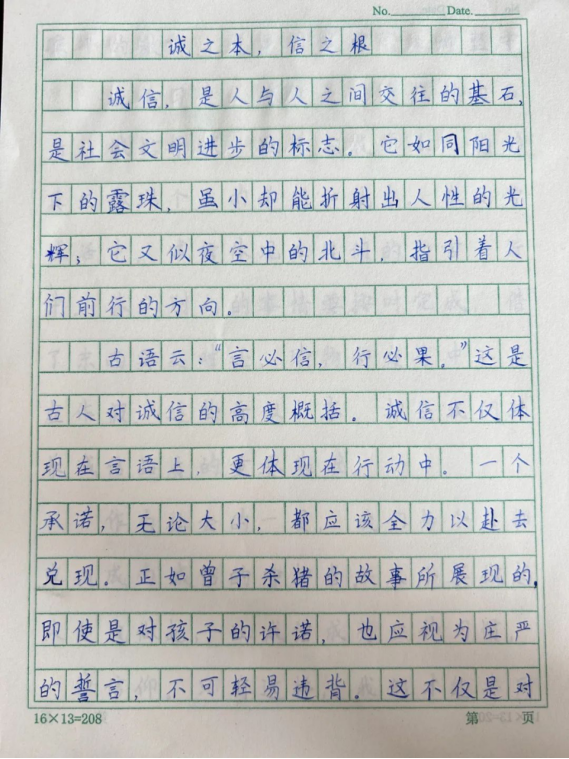 No. Date.
诚之本，信之根
诚信，是人与人之间交往的基石，
是社会文明进步的标志。它如同阳光
下的露珠，虽小却能折射出人性的光
辉；它又似夜空中的北斗，指引着人
们前行的方向。
古语云：“言必信，行必果。”这是
古人对诚信的高度概括。诚信不仅体
现在言语上，更体现在行动中。一个
承诺，无论大小，都应该全力以赴去
兑现。正如曾子杀猪的故事所展现的，
即使是对孩子的许诺，也应视为庄严
的誓言，不可轻易违背。这不仅是对
16×13=208 第 页